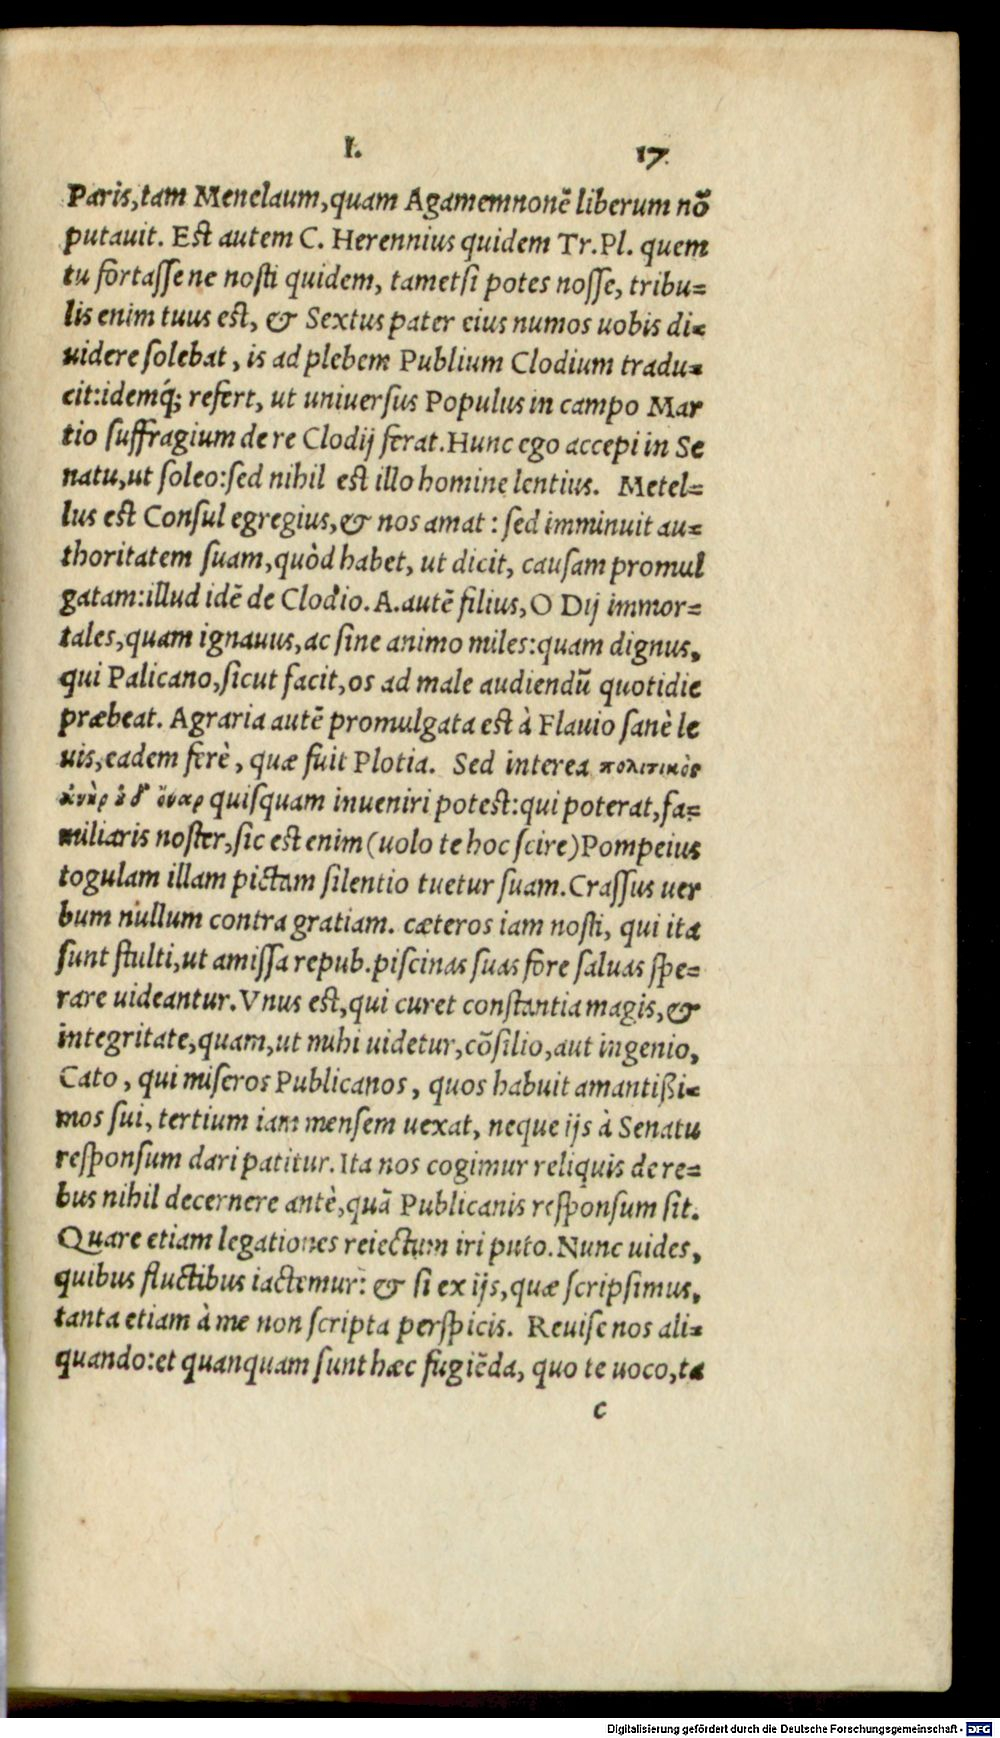 I. 17
Paris, tam Menelaum, quam Agamemnonē liberum nō
putauit. Est autem C. Herennius quidem Tr. Pl. quem
tu fortasse ne nosti quidem, tametsi potes nosse, tribu=
lis enim tuus est, & Sextus pater eius numos uobis di=
uidere solebat, is ad plebem Publium Clodium tradu=
cit: idemq́; refert, ut uniuersus Populus in campo Mar
tio suffragium de re Clodij ferat. Hunc ego accepi in Se
natu, ut soleo: sed nihil est illo homine lentius. Metel=
lus est Consul egregius, & nos amat: sed imminuit au=
thoritatem suam, quòd habet, ut dicit, causam promul
gatam: illud idē de Clodio. A. autē filius, O Dij immor=
tales, quam ignauus, ac sine animo miles: quam dignus,
qui Palicano, sicut facit, os ad male audiendū quotidie
præbeat. Agraria autē promulgata est à Flauio sanè le
uis, eadem ferè, quæ fuit Plotia. Sed interea πολιτικὸς
ἀνὴρ ȣ̓δ' ὄναρ quisquam inueniri potest: qui poterat, fa=
miliaris noster, sic est enim (uolo te hoc scire) Pompeius
togulam illam pictam silentio tuetur suam. Crassus uer
bum nullum contra gratiam. cæteros iam nosti, qui ita
sunt stulti, ut amissa repub. piscinas suas fore saluas spe=
rare uideantur. Vnus est, qui curet constantia magis, &
integritate, quam, ut mihi uidetur, cōsilio, aut ingenio,
Cato, qui miseros Publicanos, quos habuit amantißi=
mos sui, tertium iam mensem uexat, neque ijs à Senatu
responsum dari patitur. Ita nos cogimur reliquis de re=
bus nihil decernere antè, quā Publicanis responsum sit.
Quare etiam legationes reiectum iri puto. Nunc uides,
quibus fluctibus iactemur: & si ex ijs, quæ scripsimus,
tanta etiam à me non scripta perspicis. Reuise nos ali=
quando: et quanquam sunt hæc fugiēda, quo te uoco, ta
c
Digitalisierung gefördert durch die Deutsche Forschungsgemeinschaft - DFG